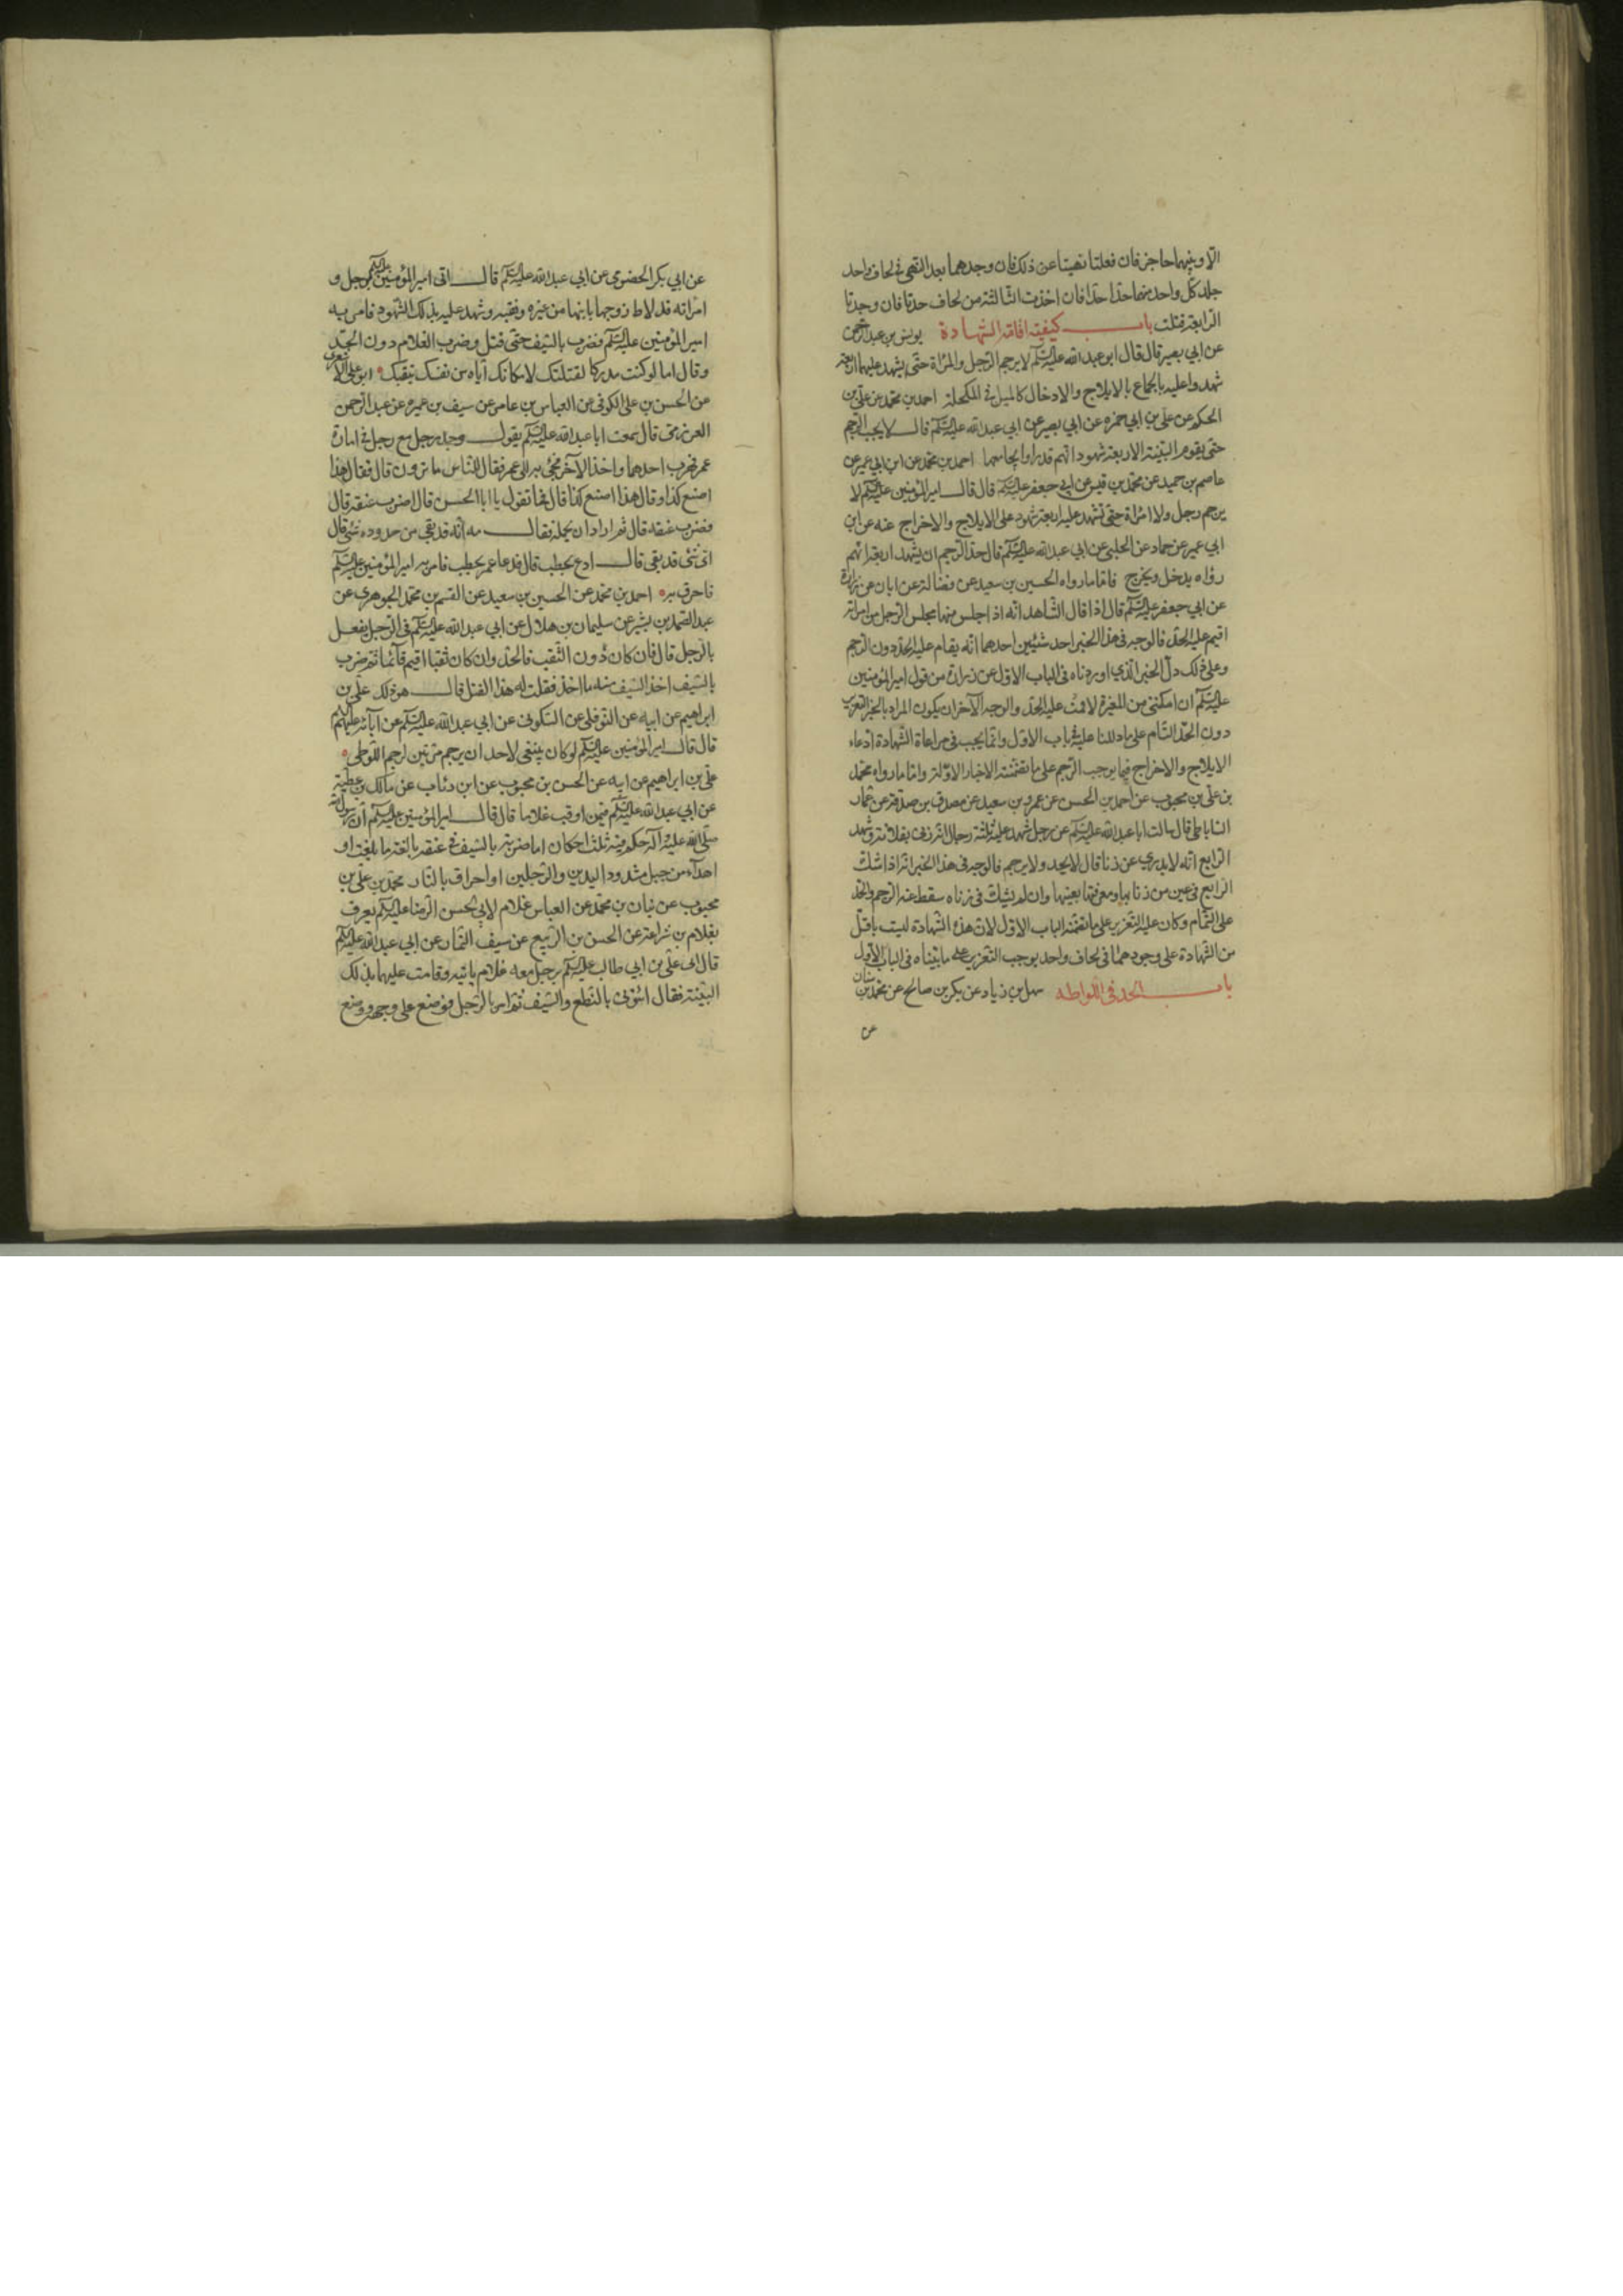 الا وبينهما حاجز فان فعلتا نهيتا عن ذلك فان وجدهما بعد النهى فى لحاف واحد
جلد كل واحد منهما حدا حدا فان اخذت الثالثة من لحاف حدتا فان وجدتا
الرابعة قتلت باب كيفية اقامة الشهادة يونس بن عبد الرحمن
عن ابي بصير قال قال ابو عبد الله عليه السلم لا يرجم الرجل والمراة حتى يشهد عليهما اربعة
شهداء عليه بالجماع بالايلاج والادخال كالميل فى المكحلة احمد بن محمد عن علي بن
الحكم عن علي بن ابي حمزه عن ابي بصير عن ابي عبد الله عليه السلم قال لا يجب الرجم
حتى يقوم البينة الاربعة شهود انهم قد راوا يجامعها احمد بن محمد عن ابن ابي عمير عن
عاصم بن حميد عن محمد بن قيس عن ابي جعفر عليه السلم قال قال امير المؤمنين عليه السلم لا
يرجم رجل ولا امراة حتى تشهد عليه اربعة شهود على الايلاج والاخراج عنه عن ابن
ابي عمير عن حماد عن الحلبي عن ابي عبد الله عليه السلم قال حد الرجم ان يشهد اربعة انهم
رؤاه يدخل ويخرج فاما ما رواه الحسين بن سعيد عن فضالة عن ابان عن زرارة
عن ابي جعفر عليه السلم قال اذا قال الشاهد انه اذا جلس منها مجلس الرجل من امراته
اقيم عليه الحد فالوجه فى هذا الخبر احد شيئين احدهما انه يقام عليه الحد دون الرجم
وعلى ذلك دل الخبر الذي اوردناه فى الباب الاول عن زرارة من قول امير المؤمنين
عليه السلم ان امكنني من المغيرة لاقمت عليه الحد والوجه الآخر ان يكون المراد بالخبر التعزير
دون الحد التام على ما دللنا عليه فى باب الاول وانما يجب فى مراعاة الشهادة ادعاء
الايلاج والاخراج فيما يوجب الرجم على ما تضمنته الاخبار الاولة واما ما رواه محمد
بن علي بن محبوب عن احمد بن الحسن عن عمرو بن سعيد عن مصدق بن صدقة عن عمار
الساباطي قال سالت ابا عبد الله عليه السلم عن رجل شهد عليه ثلثة رجال انه زنى بفلانة وشهد
الرابع انه لا يدري عن زنا قال لا يحد ولا يرجم فالوجه فى هذا الخبر انه اذا شك
الرابع فى عين من زنا بها ومعرفتها بعينها وان لم يشك فى زناه سقط عنه الرجم والحد
على التمام وكان عليه التعزير على ما تضمنه الباب الاول لان هذه الشهادة ليست باقل
من الشهادة على وجودهما فى لحاف واحد يوجب التعزير على ما بيناه فى الباب الاول
باب الحد فى اللواطه سهل بن زياد عن بكر بن صالح عن محمد بن سنان
عن
عن ابي بكر الحضرمى عن ابي عبد الله عليه السلم قال اتى امير المؤمنين عليه السلم برجل و
امراته قد لاط زوجها بابنها من غيره وثقبه وشهد عليه بذلك الشهود فامر به
امير المؤمنين عليه السلم فضرب بالسيف حتى قتل وضرب الغلام دون الحد
وقال اما لو كنت مدركا لقتلتك لامكانك اياه من نفسك بثقبك ابو علي الاشعرى
عن الحسن بن علي الكوفى عن العباس بن عامر عن سيف بن عميره عن عبد الرحمن
العرزمى قال سمعت ابا عبد الله عليه السلم يقول وجد رجل مع رجل فى امارة
عمر فهرب احدهما واخذ الآخر فجئ به الى عمر فقال للناس ما ترون قال فقال هذا
اصنع كذا وقال هذا اصنع كذا قال فما تقول يا ابا الحسن قال اضرب عنقه قال
فضرب عنقه قال ثم اراد ان يحمله فقال مه انه قد بقي من حدوده شئ قال
اى شئ قد بقى قال ادع بحطب قال فدعا عمر بحطب فامر به امير المؤمنين عليه السلم
فاحرق به احمد بن محمد عن الحسين بن سعيد عن القسم بن محمد الجوهري عن
عبد الصمد بن بشير عن سليمان بن هلال عن ابي عبد الله عليه السلم فى الرجل يفعل
بالرجل قال فان كان دون الثقب فالحد وان كان ثقبا اقيم قآئما ثم ضرب
بالسيف اخذ السيف منه ما اخذ فقلت له هذا القتل قال هو ذلك علي بن
ابراهيم عن ابيه عن النوفلي عن السكونى عن ابي عبد الله عليه السلم عن آبائه عليهم السلم
قال قال امير المؤمنين عليه السلم لو كان ينبغى لاحد ان يرجم مرتين لرجم اللوطى
علي بن ابراهيم عن ابيه عن الحسن بن محبوب عن ابن رئاب عن مالك بن عطية
عن ابي عبد الله عليه السلم فيمن اوقب غلاما قال قال امير المؤمنين عليه السلم ان رسول الله
صلى الله عليه وآله حكم فيه ثلث احكام اما ضربة بالسيف فى عنقه بالغة ما بلغت او
اهدآء من جبل مشدود اليدين والرجلين او احراق بالنار محمد بن علي بن
محبوب عن بنان بن محمد عن العباس غلام لابي الحسن الرضا عليه السلم يعرف
بغلام بن شراعة عن الحسن بن الربيع عن سيف التمار عن ابي عبد الله عليه السلم
قال اتى علي بن ابي طالب عليه السلم برجل معه غلام ياتيه وقامت عليهما بذلك
البينة فقال ائتونى بالنطع والسيف ثم امر بالرجل فوضع على وجهه ووضع